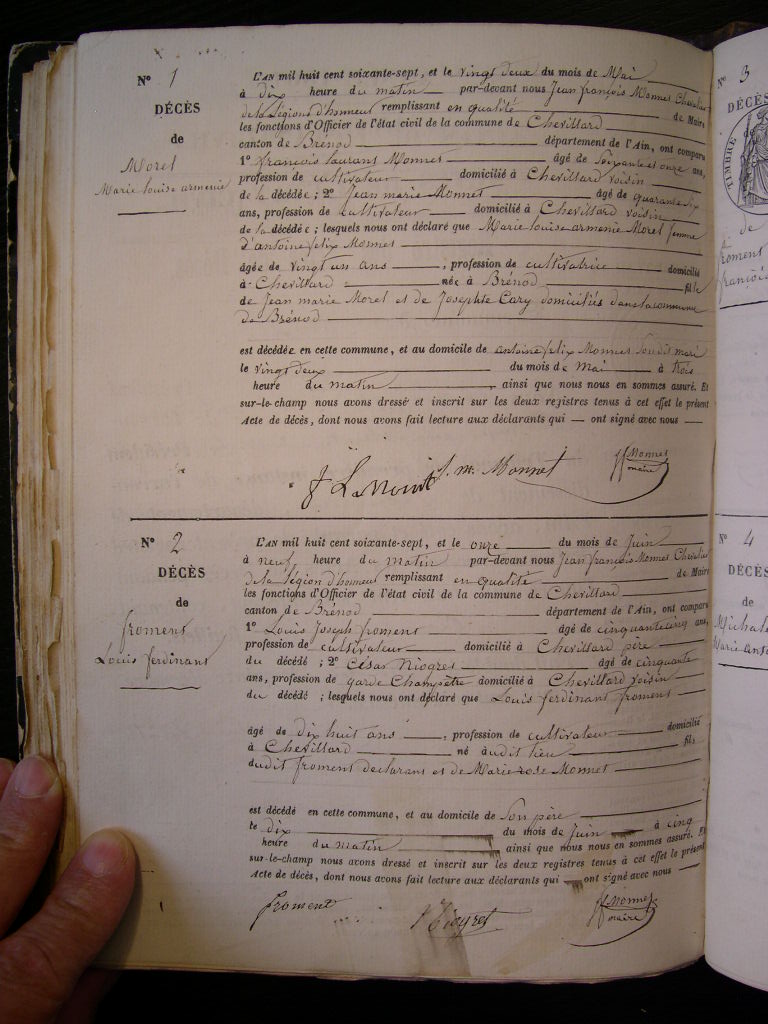 N° 1
DÉCÈS
de
Morel
Marie louise armenie
L'AN mil huit cent soixante-sept, et le vingt deux du mois de Mai
à dix heure du matin par-devant nous Jean françois Monnet Chevalier
de la Légions d'honneur remplissant en qualité de Maire
les fonctions d'Officier de l'état civil de la commune de Chevillard
canton de Brénod département de l'Ain, ont comparu
1° francois laurans Monnet âgé de Soixante et onze ans,
profession de cultivateur domicilié à Chevillard voisin
de la décédée ; 2° Jean marie Monnet âgé de quarante six
ans, profession de cultivateur domicilié à Chevillard voisin
de la décédée ; lesquels nous ont déclaré que Marie louise armenie Morel femme
d'antoine felix Monnet
âgée de vingt un ans , profession de cultivatrice domicilié
à Chevillard née à Brénod fille
de Jean marie Morel et de Josephte Cary domiciliés dans la commune
de Brénod
est décédée en cette commune, et au domicile de antoine felix Monnet Son dit mari
le vingt deux du mois de Mai à trois
heure du matin , ainsi que nous nous en sommes assuré. Et
sur-le-champ nous avons dressé et inscrit sur les deux registres tenus à cet effet le présent
Acte de décès, dont nous avons fait lecture aux déclarants qui — ont signé avec nous
J. m. Monnet
Monnet
maire
N° 2
DÉCÈS
de
froment
Louis ferdinant
L'AN mil huit cent soixante-sept, et le onze du mois de Juin
à neuf heure du matin par-devant nous Jean françois Monnet Chevalier
de la Légion d'honneur remplissant en qualité de Maire
les fonctions d'Officier de l'état civil de la commune de Chevillard
canton de Brénod département de l'Ain, ont comparu
1° Louis Joseph froment âgé de cinquante cinq ans,
profession de cultivateur domicilié à Chevillard père
du décédé ; 2° César Niogret âgé de cinquante
ans, profession de garde Champêtre domicilié à Chevillard voisin
du décédé ; lesquels nous ont déclaré que Louis ferdinant froment
âgé de dix huit ans , profession de cultivateur domicilié
à Chevillard né audit lieu fils
dudit froment declarant et de Marie rose Monnet
est décédé en cette commune, et au domicile de Son père
le dix du mois de Juin à cinq
heure du matin ainsi que nous nous en sommes assuré. Et
sur-le-champ nous avons dressé et inscrit sur les deux registres tenus à cet effet le présent
Acte de décès, dont nous avons fait lecture aux déclarants qui ont signé avec nous
froment
Monnet
maire
N° 3
DÉCÈS
TIMBRE
de
froment
N° 4
DÉCÈS
de